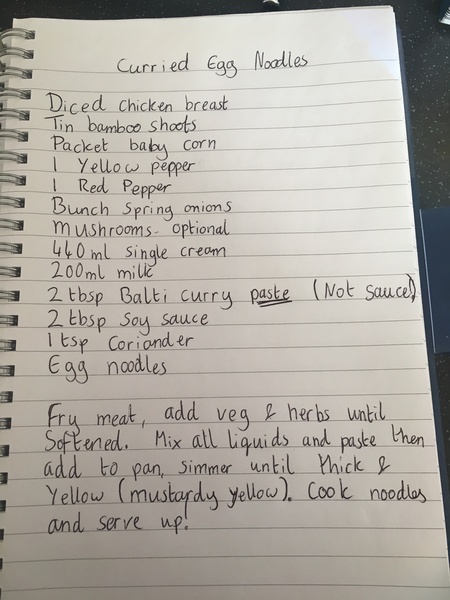 Curried Egg Noodles
Diced chicken breast
Tin bamboo shoots
Packet baby corn
1 Yellow pepper
1 Red Pepper
Bunch spring onions
Mushrooms - optional
440ml single cream
200ml milk
2 tbsp Balti curry paste (Not sauce)
2 tbsp Soy sauce
1 tsp Coriander
Egg noodles
Fry meat, add veg & herbs until
Softened. Mix all liquids and paste then
add to pan, simmer until thick &
Yellow (mustardy yellow). Cook noodles
and serve up!